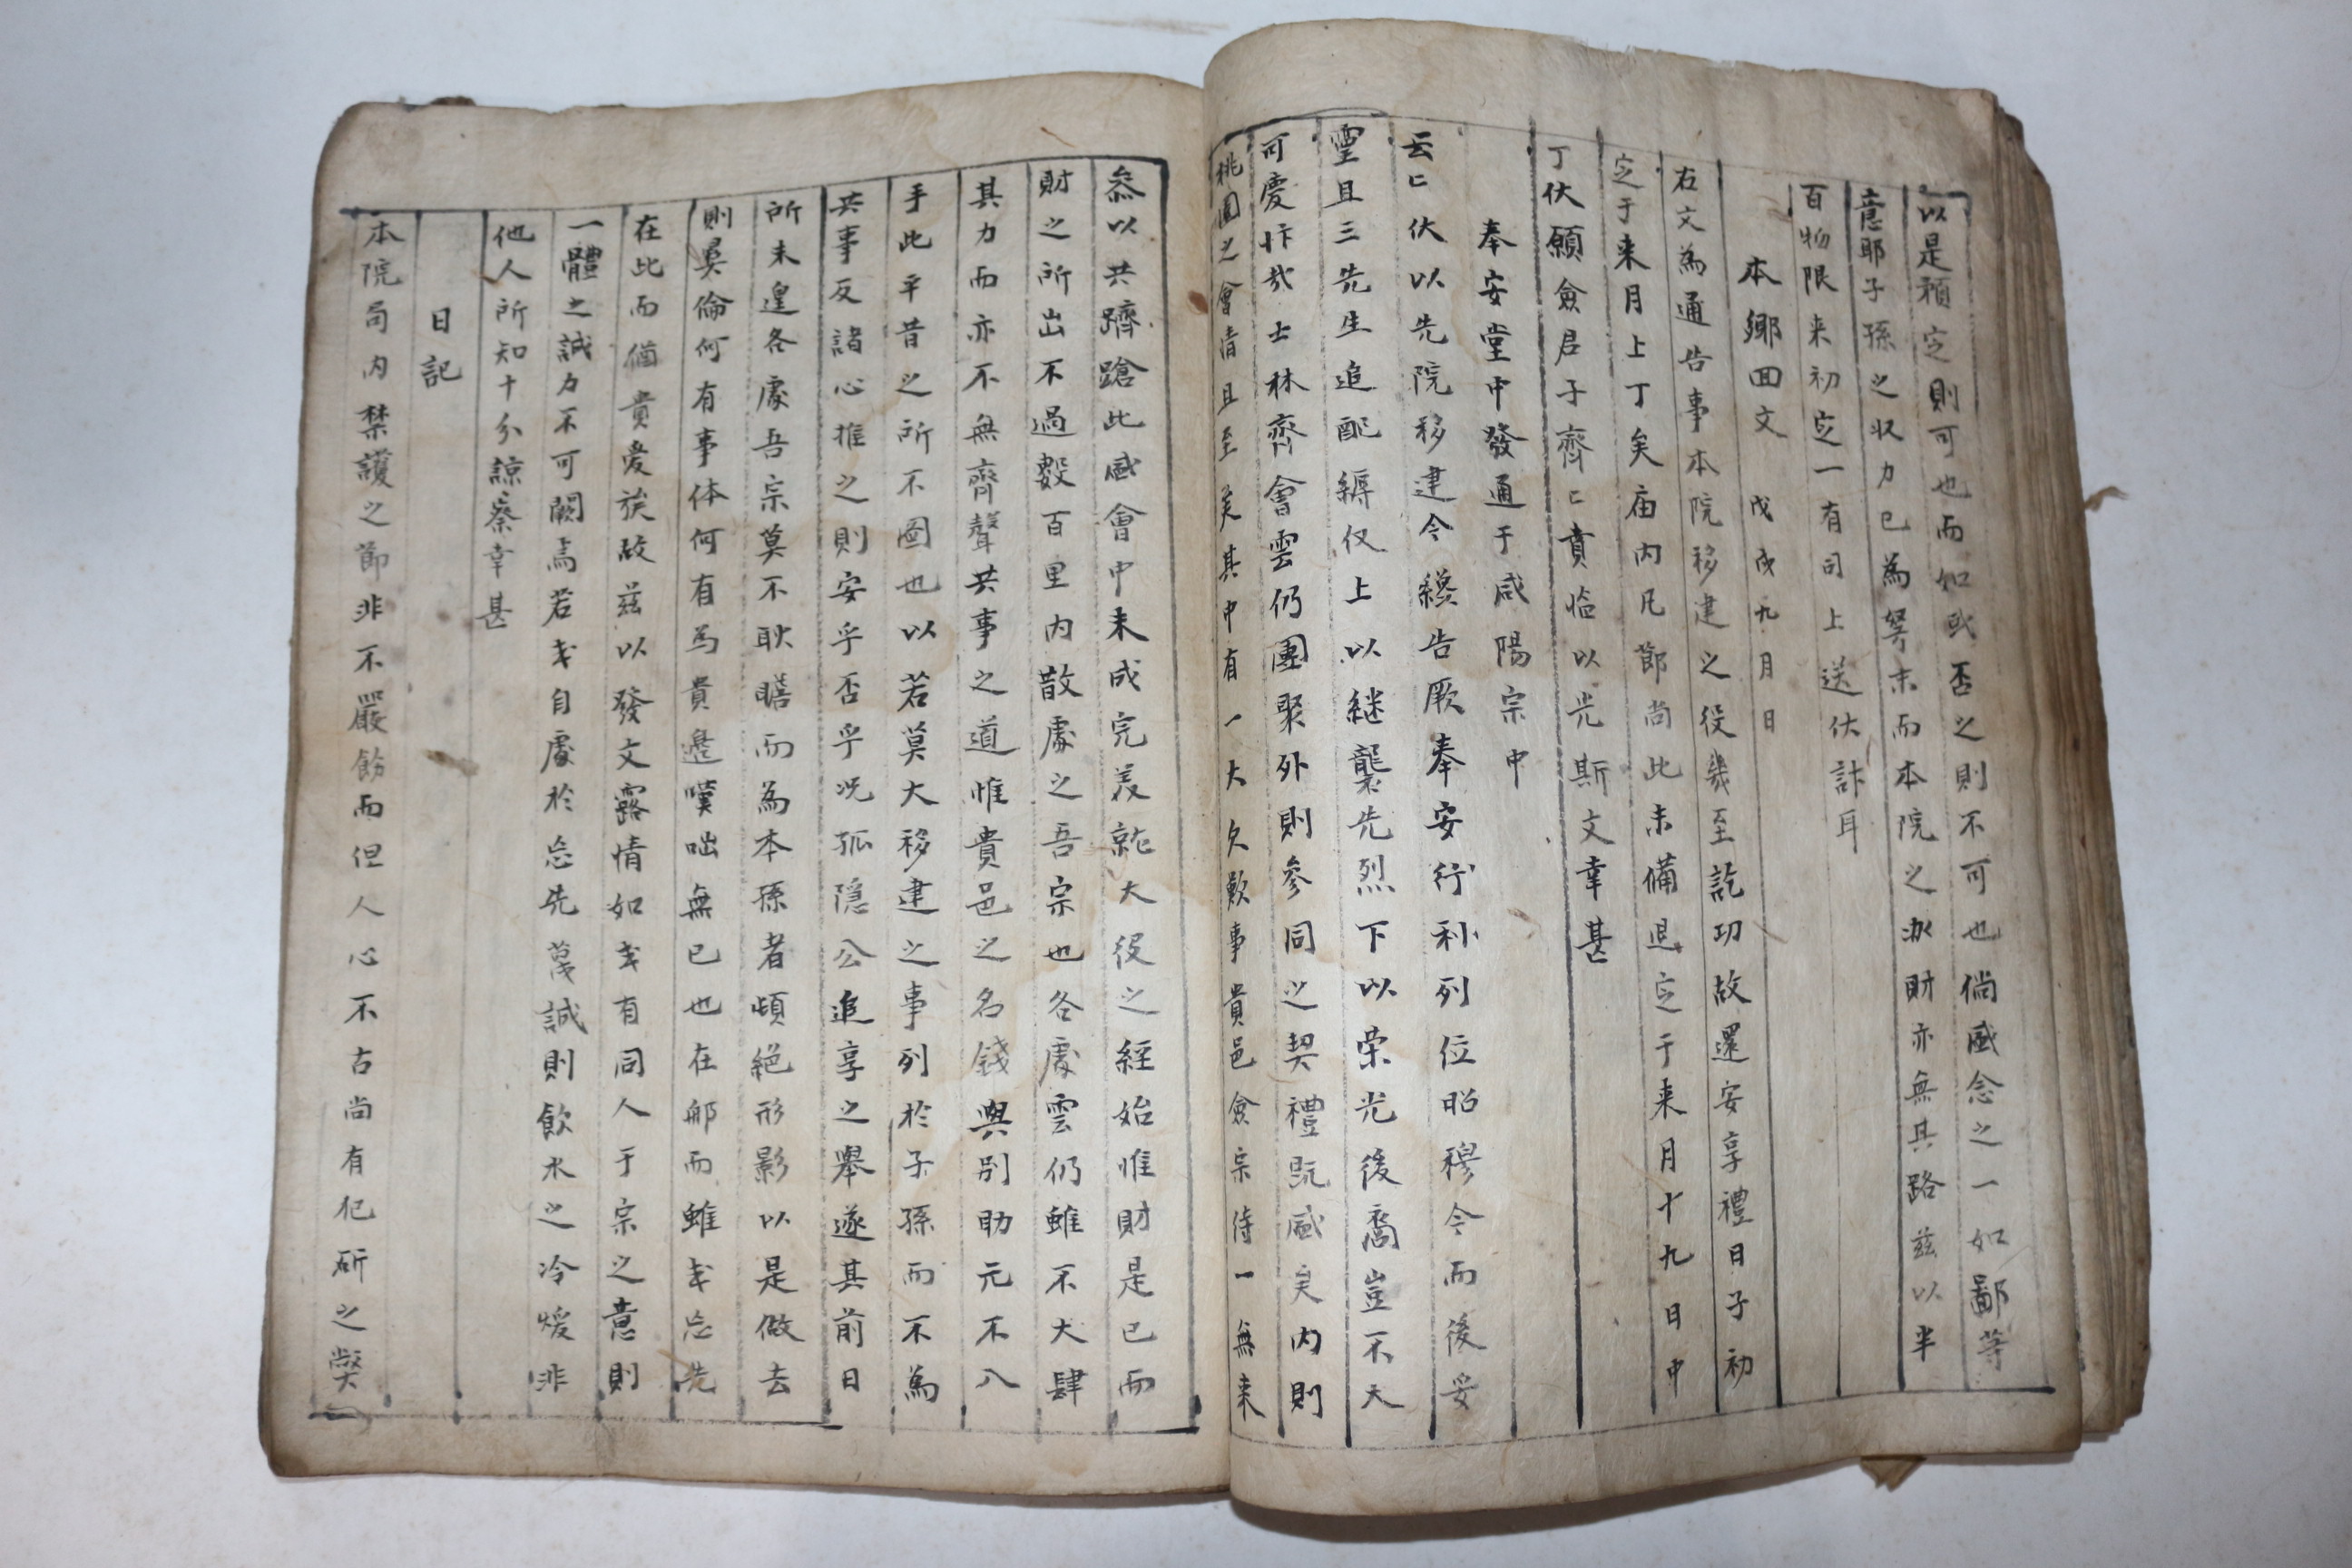 以是預定則可也而如或否之則不可也倘感念之一如鄙等
意耶子孫之収力已為弩末而本院之沕財亦無其路玆以半
百物限来初定一有司上送伏計耳
本鄕回文 戊戌九月日
右文為通告事本院移建之役幾至訖功故還安享禮日子初
定于来月上丁矣庙内凡節尚此未備退定于来月十九日中
丁伏願僉君子齊〻賁臨以光斯文幸甚
奉安堂中發通于咸陽宗中
云〻伏以先院移建今纔告厥奉安行利列位昭穆今而後妥
灵且三先生追配縟仪上以継襲先烈下以荣光後裔豈不大
可慶忭哉士林齊會雲仍團聚外則參同之契禮既感矣内則
桃園之會情且至矣其中有一大欠歎事貴邑僉宗待一無来
叅以共躋蹌此盛會中未成完羙説大役之經始惟財是已而
財之所出不過數百里内散處之吾宗也各處雲仍雖不大肆
其力而亦不無齊聲共事之道惟貴邑之名錢與別助元不入
手此平昔之所不图也以若莫大移建之事列於子孫而不為
共事反諸心推之則安乎否乎况孤隱公追享之舉遂其前日
所未遑各處吾宗莫不耿瞻而為本孫者頓絶形影以是做去
則彛倫何有事体何有為貴邊嘆咄無已也在鄙而雖或忘先
在此而猶貴爱族故玆以發文露情如或有同人于宗之意則
一體之誠力不可闕焉若或自處於忘先蔑誠則飲水之冷煖非
他人所知十分諒察幸甚
日記
本院局内禁護之節非不嚴飭而但人心不古尚有犯斫之獘